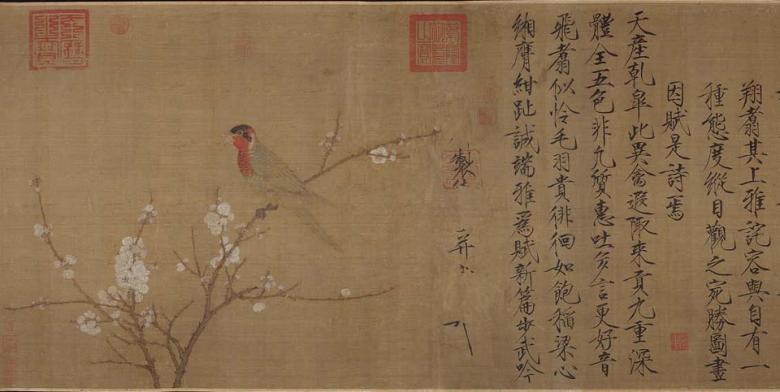 翔翥其上雅詫容與自有一
種態度縱目觀之宛勝圖畫
因賦是詩焉
天產乾皐此異禽遐陬來貢九重深
體全五色非凡質惠吐多言更好音
飛翥似怜毛羽貴徘徊如飽稻梁心
緗膺紺趾誠端雅爲賦新篇步武吟
製